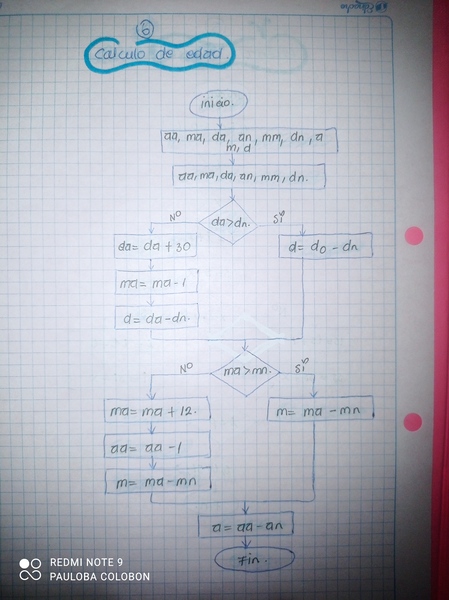 6
Calculo de edad.
inicio.
aa, ma, da, an, mm, dn, a
m, d
aa, ma, da, an, mm, dn.
da>dn.
NO
Sí
da= da +30
d= do - dn
ma= ma-1
d= da-dn.
ma>mn.
NO
Sí
ma= ma+12.
m= ma-mn
aa= aa -1
m= ma-mn
a= aa-an
Fin.
REDMI NOTE 9
PAULOBA COLOBON